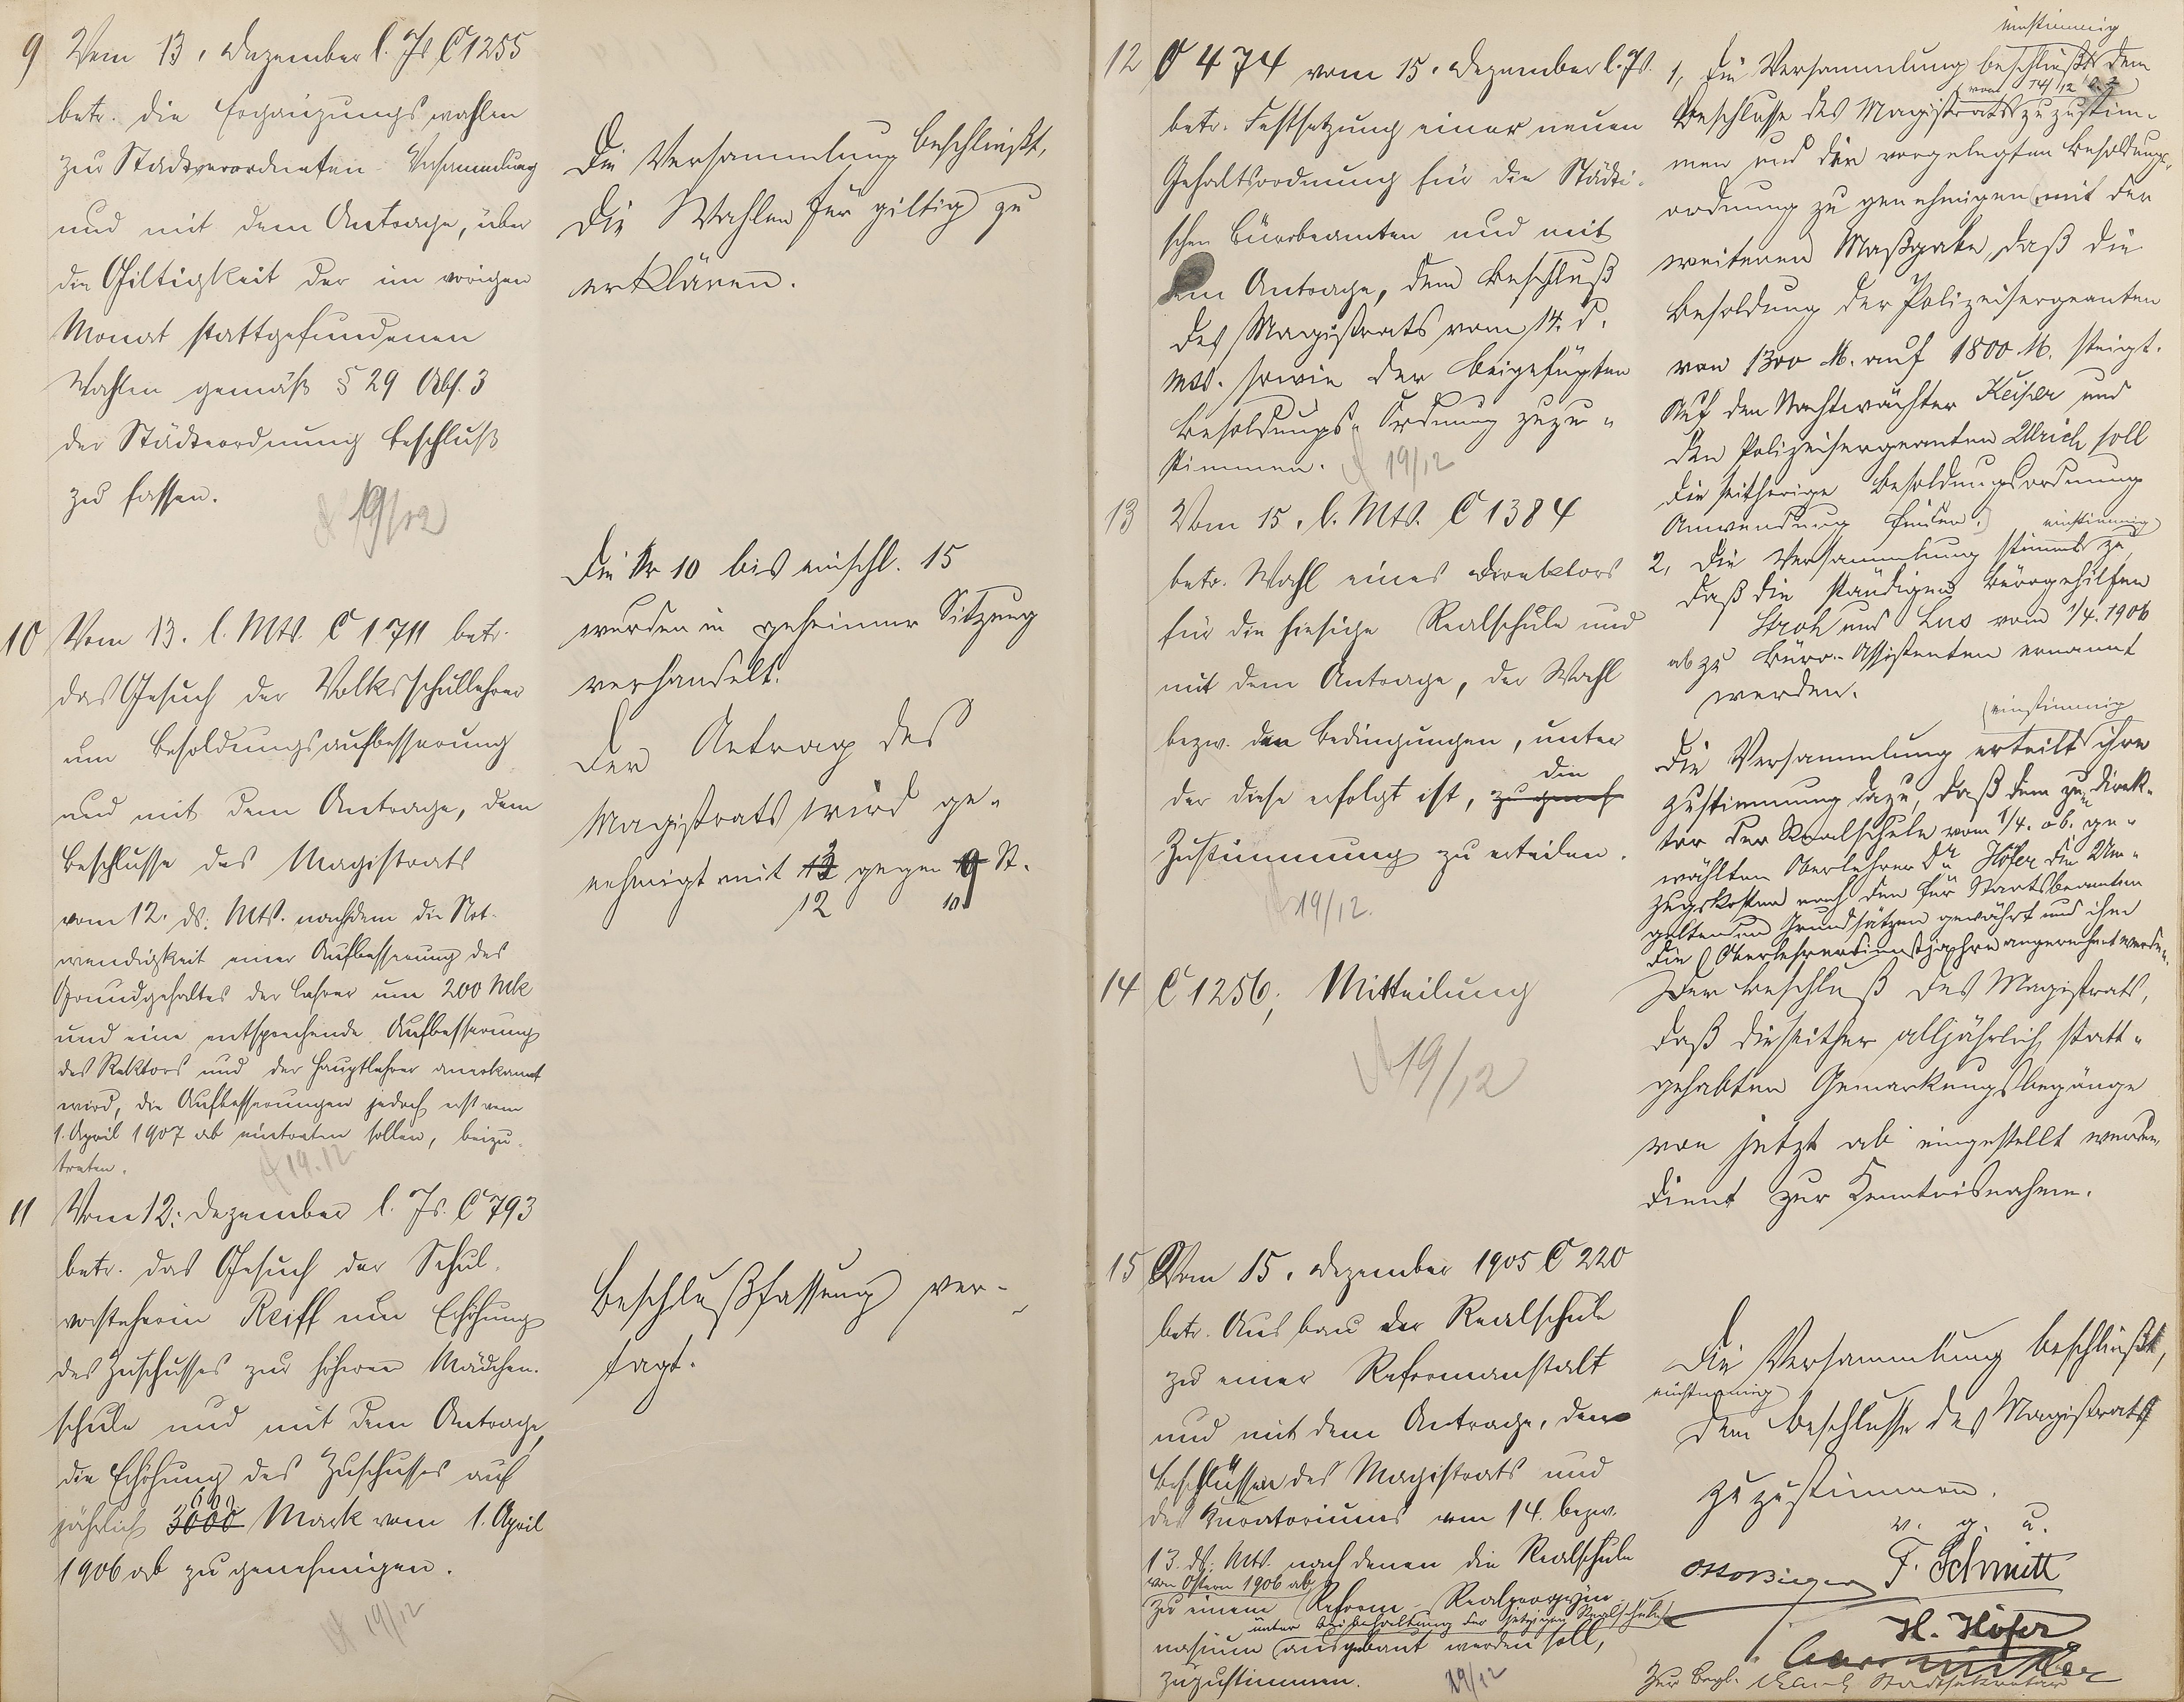 9 Vom 13. Dezember l. Js. C 1255
betr. die Ergänzungswahlen
zur Stadtverordneten-Versammlung
und mit dem Antrage, über
die Giltigkeit der im vorigen
Monat stattgefundenen
Wahlen gemäß § 29 Abs. 3
der Städteordnung Beschluß
zu fassen.
19/12
Die Versammlung beschließt,
die Wahlen für giltig zu
erklären.
Die Nr 10 bis einschl. 15
wurden in geheimer Sitzung
verhandelt.
10 Vom 13. l. Mts. C 1711 betr.
das Gesuch der Volksschullehrer
um Besoldungsaufbesserung
und mit dem Antrage, dem
Beschlusse des Magistrats
vom 12. ds. Mts. nachdem die Not-
wendigkeit einer Aufbesserung des
Grundgehaltes der Lehrer um 200 Mk
und eine entsprechende Aufbesserung
des Rektors und der Hauptlehrer anerkannt
wird, die Aufbesserungen jedoch erst vom
1. April 1907 ab eintreten sollen, beizu-
treten.
19.12
Der Antrag des
Magistrats wird ge-
nehmigt mit 13 gegen 9 St.
12 10
11 Vom 12. Dezember l. Js. C 793
betr. das Gesuch der Schul-
vorsteherin Reiff um Erhöhung
des Zuschusses zur höheren Mädchen-
schule und mit dem Antrage,
die Erhöhung des Zuschusses auf
600
jährlich 3000 Mark vom 1. April
1906 ab zu genehmigen.
19/12
Beschlußfassung ver-
tagt.
12 C 474 vom 15. Dezember l. Js.
betr. Festsetzung einer neuen
Gehaltsordnung für die Städti-
schen Bürobeamten und mit
dem Antrage, dem Beschluß
des Magistrats vom 14. d.
Mts. sowie der beigefügten
Besoldungs-Ordnung zuzu-
stimmen.
19/12
einstimmig
1, Die Versammlung beschließt dem
vom 14/12
Beschlusse des Magistrats zuzustim-
men und die vorgelegten Besoldungs-
ordnung zu genehmigen mit der
weiteren Maßgabe, daß die
Besoldung der Polizeisergeanten
von 1300 M. auf 1800 M. steigt.
Auf den Nachtwächter Keiper und
den Polizeisergeanten Ulrich soll
die seitherige Besoldungsordnung
Anwendung finden.
einstimmig
2, Die Versammlung stimmt zu,
daß die ständigen Bürogehilfen
Stroh und Lus vom 1/4. 1906
ab zu Büro-Assistenten ernannt
werden.
13 Vom 15. l. Mts. C 1384
betr. Wahl eines Direktors
für die hiesige Realschule und
mit dem Antrage, der Wahl
bezw. den Bedingungen, unter
die
der diese erfolgt ist, zu geneh
Zustimmung zu erteilen.
19/12.
einstimmig
Die Versammlung erteilt ihre
Zustimmung dazu, daß dem zum Direk-
tor der Realschule vom 1/4. 06. ge-
wählten Oberlehrer Dr Höfer die Um-
zugskosten nach den für Staatsbeamten
geltenden Grundsätzen gewährt und ihm
die Oberlehrerdienstjahre angerechnet werden.
14 C 1256, Mitteilung
19/12
Der Beschluß des Magistrats,
daß die seither alljährlich statt-
gehabten Gemarkungsbegänge
von jetzt ab eingestellt werden,
dient zur Kenntnisnahme.
15 Vom 15. Dezember 1905 C 220
betr. Ausbau der Realschule
zu einer Reformanstalt
und mit dem Antrage, den
Beschlüssen des Magistrats und
des Kuratoriums vom 14. bezw.
13. ds. Mts. nach denen die Realschule
von Ostern 1906 ab
zu einem Reform-Realprogym-
unter Beibehaltung der jetzigen Realschule
nasium ausgebaut werden soll,
zuzustimmen.
19/12
Die Versammlung beschließt,
einstimmig
dem Beschlusse des Magistrats
zuzustimmen.
v. g. u.
F. Schmitt
H. Höfer
Zur Begl. Stadtsekretär